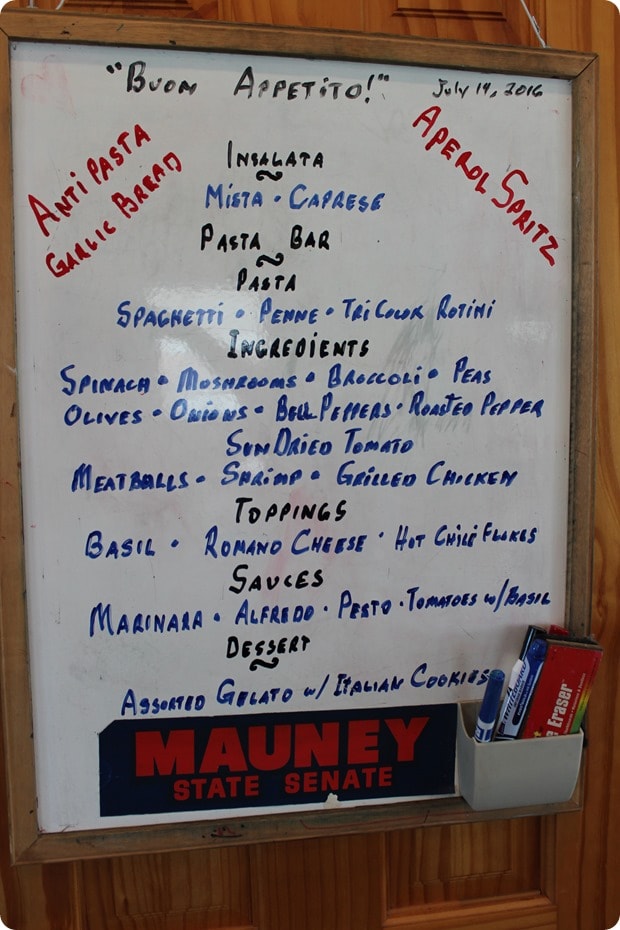 "BUON APPETITO!"
July 14, 2016
ANTIPASTA
GARLIC BREAD
APEROL SPRITZ
INSALATA
MISTA • CAPRESE
PASTA BAR
PASTA
SPAGHETTI • PENNE • TRI COLOR ROTINI
INGREDIENTS
SPINACH • MUSHROOMS • BROCCOLI • PEAS
OLIVES • ONIONS • BELL PEPPERS • ROASTED PEPPER
SUNDRIED TOMATO
MEATBALLS • SHRIMP • GRILLED CHICKEN
TOPPINGS
BASIL • ROMANO CHEESE • HOT CHILE FLAKES
SAUCES
MARINARA • ALFREDO • PESTO • TOMATOES w/BASIL
DESSERT
ASSORTED GELATO w/ ITALIAN COOKIES
MAUNEY
STATE SENATE
Eraser